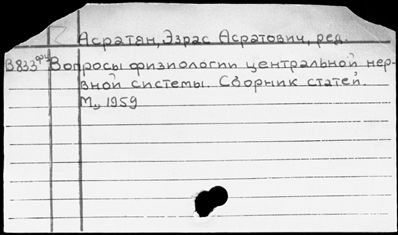 Асратян, Эзрас Асратович, ред.
В833 Вопросы физиологии центральной нер-
вной системы. Сборник статей.
М., 1959